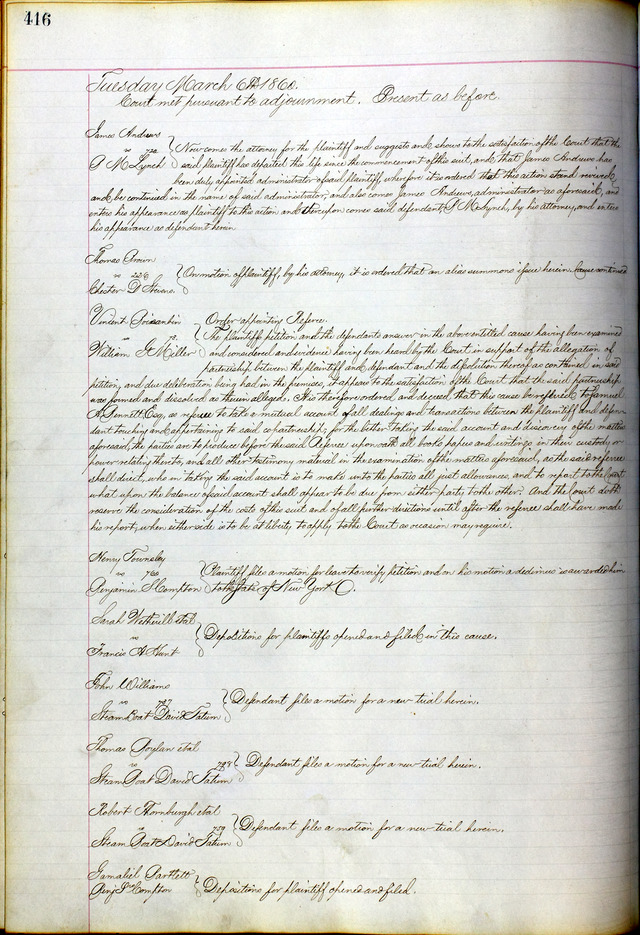 416
Tuesday March 6th 1860.
Court met pursuant to adjournment. Present as before.
James Andrews
vs
P M Lynch
Now comes the attorney for the plaintiff and suggests and shows to the satisfaction of the Court that the
said plaintiff has departed this life since the commencement of this suit, and that James Andrews has
been duly appointed administrator of said plaintiff wherefore it is ordered that this action stand revived
and be continued in the name of said administrator, and also comes James Andrews, administrator as aforesaid, and
enters his appearance as plaintiff to this action and thereupon comes said defendant, P M Lynch, by his attorney, and enters
his appearance as defendant herein
Thomas
vs
Chester D Stevens
On motion of plaintiff, by his attorney, it is ordered that an alias summons issue herein. Cause continued
Vincent
vs
William G Miller
Order appointing Referee.
The plaintiffs petition and the defendants answer in the above entitled cause having been examined
and considered and evidence having been heard by the Court in support of the allegation of
partnership between the plaintiff and defendant and the dissolution thereof as contained in said
petition, and due deliberation being had in the premises, it appears to the satisfaction of the Court that the said partnership
was formed and dissolved as therein alleged. It is therefore ordered and decreed that this cause be referred to Samuel
A Bennett Esq, as referee to take a mutual account of all dealings and transactions between the plaintiff and defen-
dant touching and appertaining to said copartnership; for the better taking the said account and discovery of the matters
aforesaid, the parties are to produce before the said Referee upon oath all books papers and writings in their custody or
power relating thereto, and all other testimony material in the examination of the matters aforesaid, as the said referee
shall direct, who in taking the said account is to make unto the parties all just allowances, and to report to the Court
what upon the balance of said account shall appear to be due from either party to the other. And the Court doth
reserve the consideration of the costs of this suit and of all further directions until after the referee shall have made
his report, when either side is to be at liberty to apply to the Court as occasion may require.
Henry Townsley
vs
Benjamin F Hampton
Plaintiff files a motion for leave to verify petition and on his motion a dedimus is awarded him
to the State of New York
Sarah Wetherill et al
vs
Francis A Hunt
Depositions for plaintiffs opened and filed in this cause.
John Williams
vs 757
Steam Boat David Tatum
Defendant files a motion for a new trial herein.
Thomas Boylan et al
vs 758
Steam Boat David Tatum
Defendant files a motion for a new trial herein.
Robert Thornburgh et al
vs 759
Steam Boat David Tatum
Defendant files a motion for a new trial herein.
Gamaliel Bartlett
Benj F Hampton
Depositions for plaintiff opened and filed.